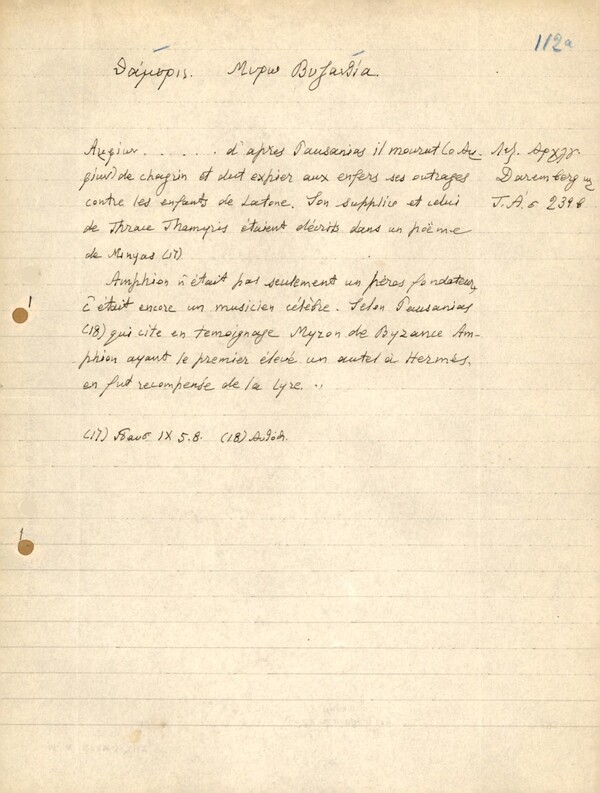 112a
Θάμυρις. Μυρω Βυζαντία.
Αμφίων . . . . . . d'après Pausanias il mourut (ο Αμ-
φίων) de chagrin et dut expier aux enfers ses outrages
contre les enfants de Latone. Son supplice et celui
de Thrace Thamyris étaient décrits dans un poëme
de Minyas (17)
Amphion n'était pas seulement un héros fondateur,
c'était encore un musicien célèbre. Selon Pausanias
(18) qui cite en temoignage Myron de Byzance Am-
phion ayant le premier élevé un autel à Hermès,
en fut recompensé de la Lyre.
Λεξ. Αρχ
Daremberg
Τ.Α΄ σ 239
(17) Παυσ IX 5.8. (18) Αυτόθ.